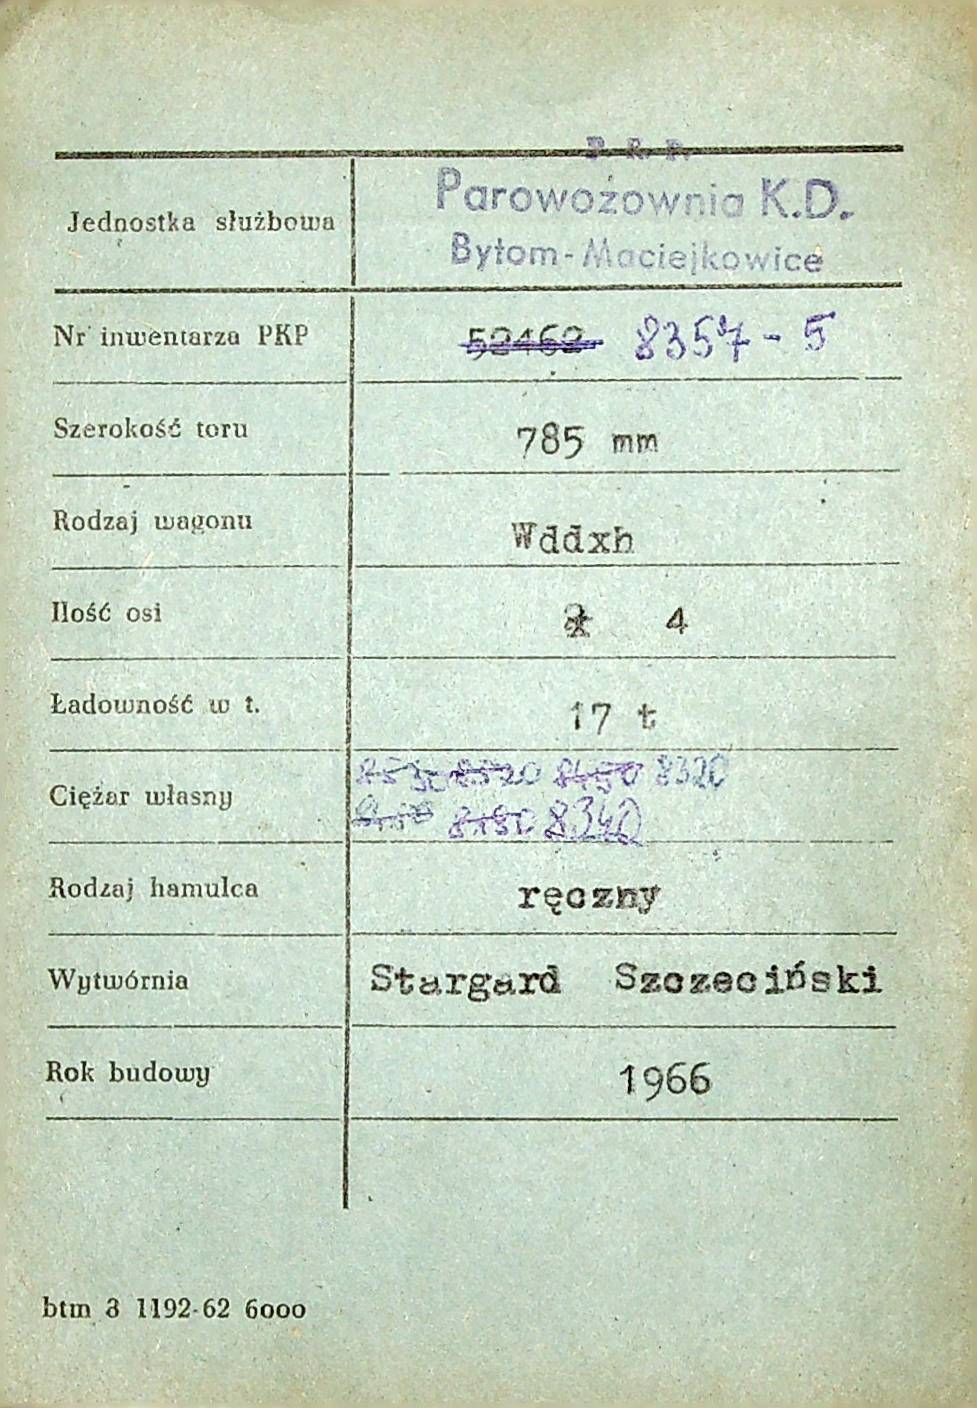 P. K. P.
Parowozownia K.D.
Jednostka służbowa
Bytom-Maciejkowice
Nr inwentarza PKP 52462 8357-5
Szerokość toru 785 mm
Rodzaj wagonu Wddxh
Ilość osi 4
Ładowność w t. 17 t
8520 8450 8320
Ciężar własny
8340
Rodzaj hamulca ręczny
Wytwórnia Stargard Szczeciński
Rok budowy 1966
btm 3 1192-62 6000